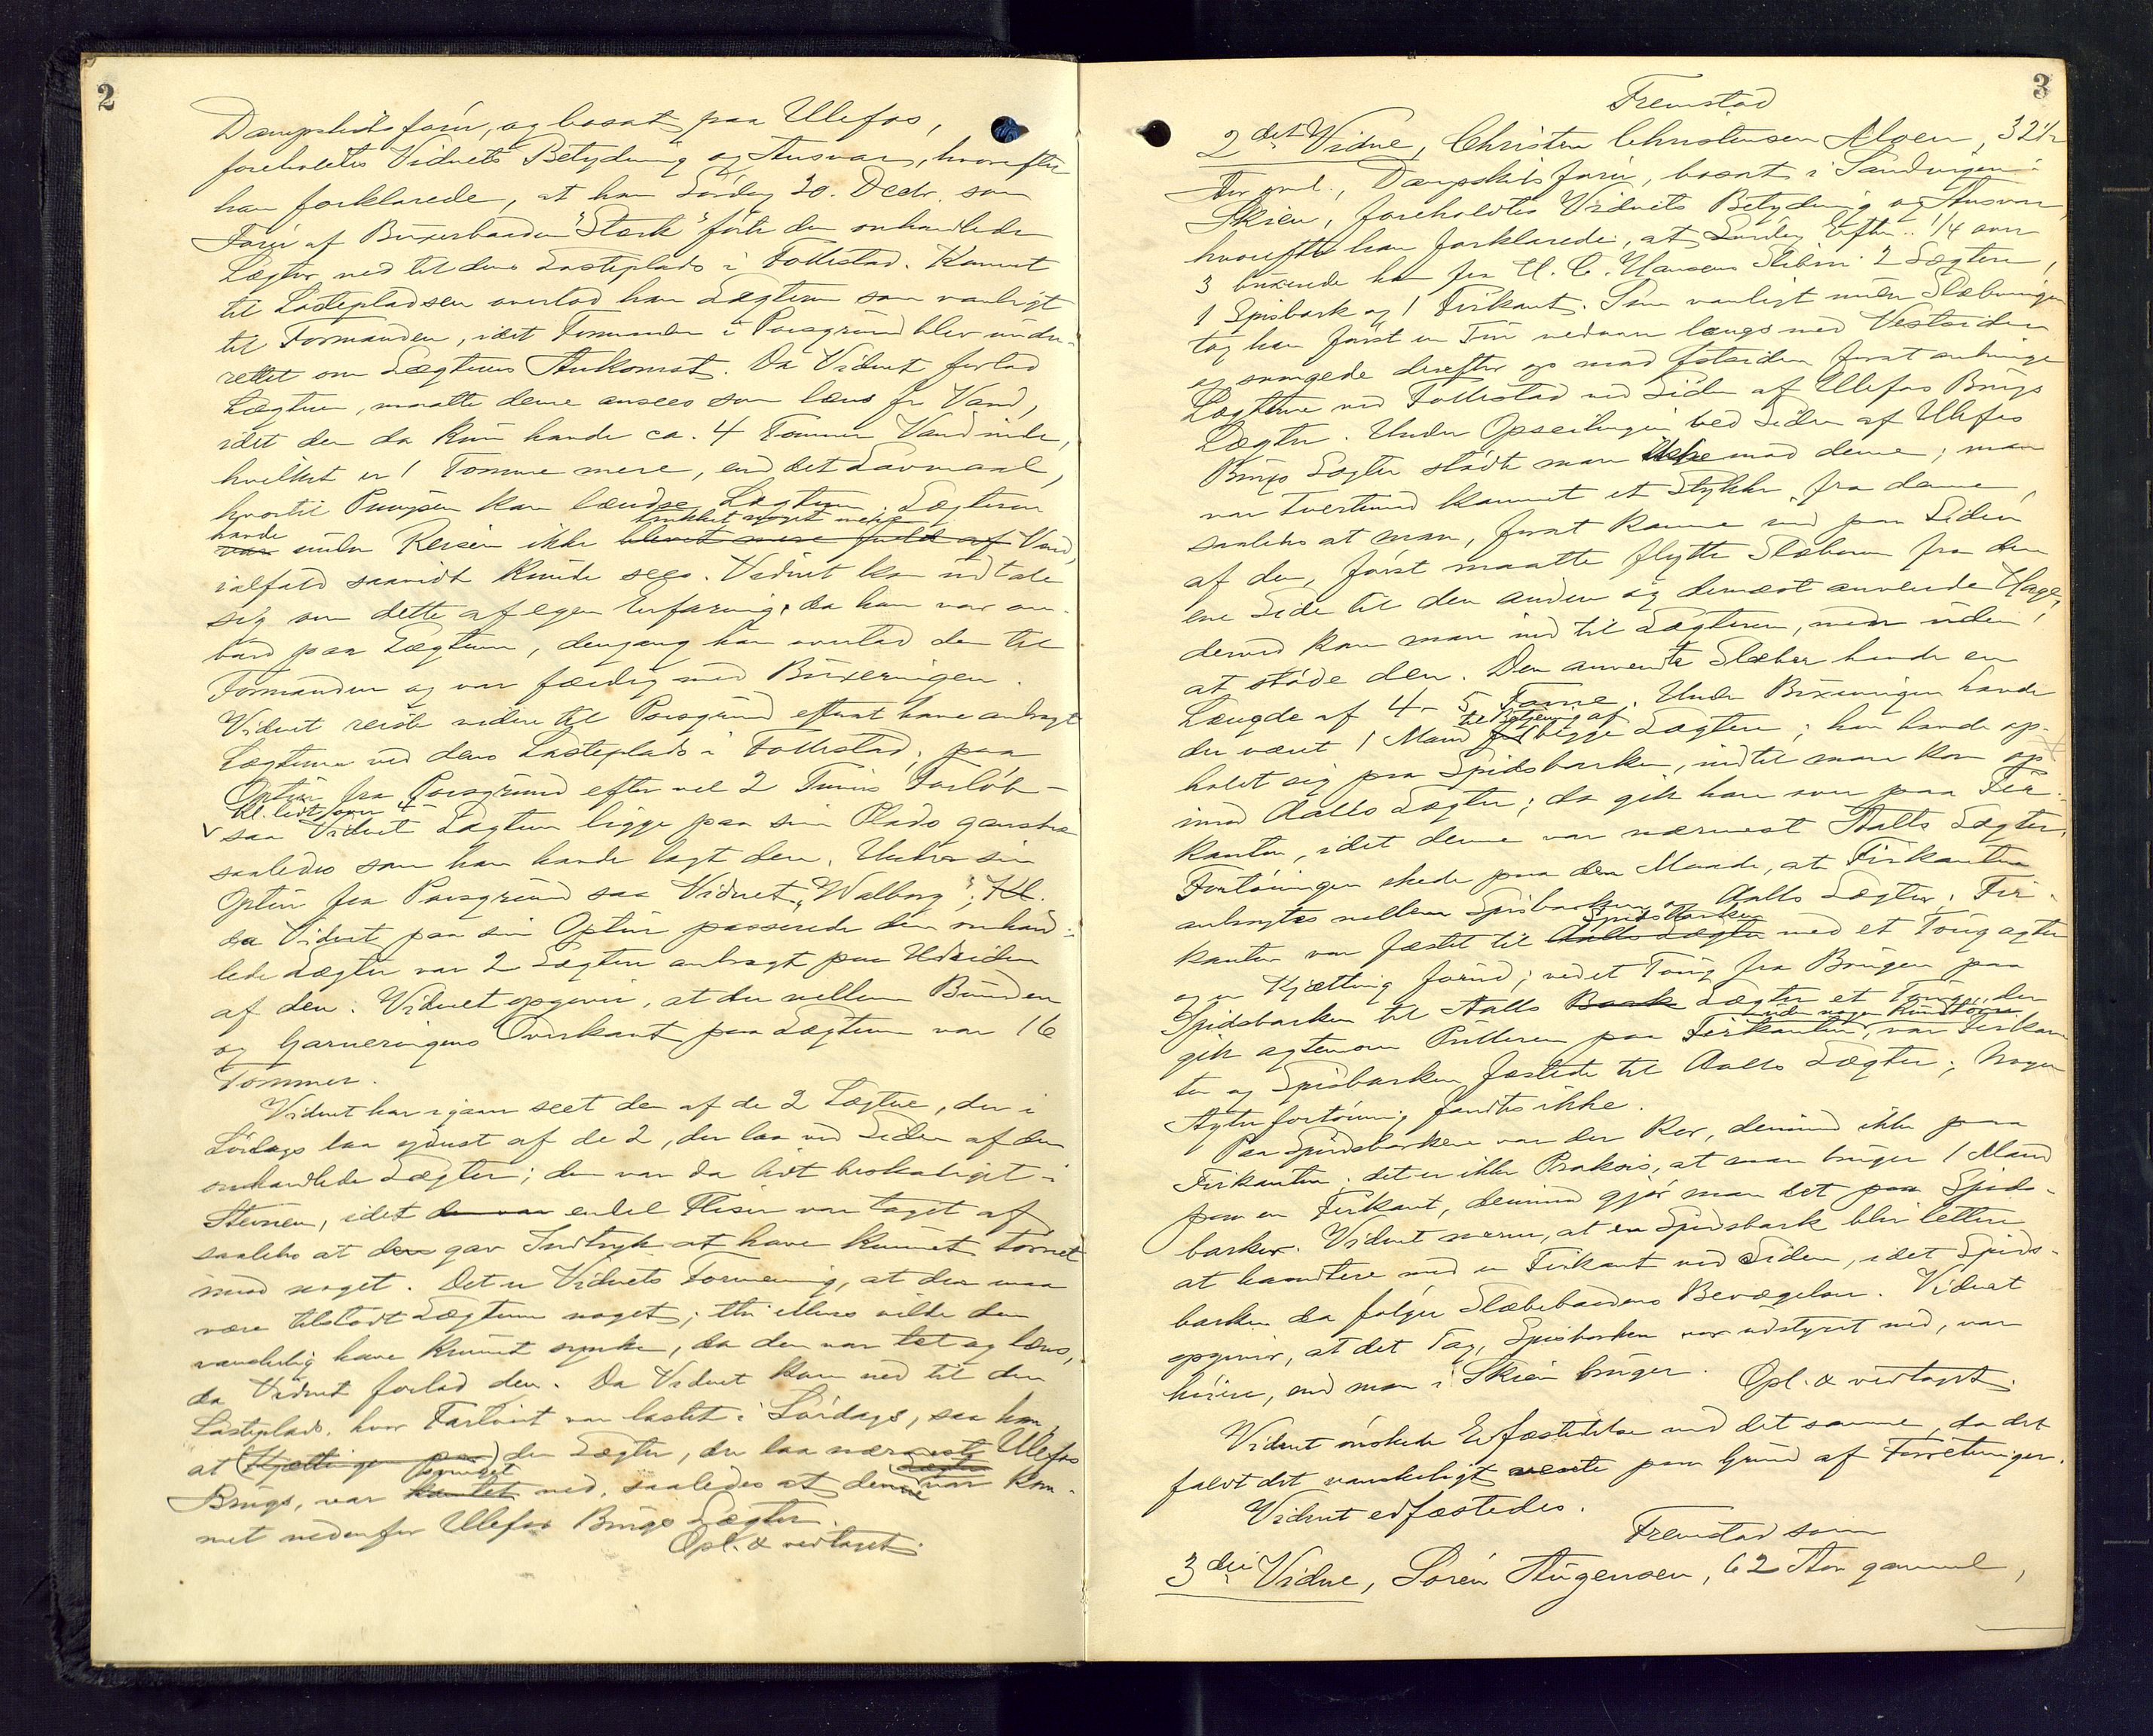 2
Dampskibsfører, og bosat paa Ulefos,
foreholdtes Vidnets Betydning og Ansvar, hvorefter
han forklarede, at han Lørdag 30. Decbr. som
Fører af Buxerbaaden "Stærk" førte den omhandlede
Lægter ned til dens Lasteplads i Follestad. Kommet
til Lastepladsen overlod han Lægteren som vanligt
til Formanden, idet Formanden i Porsgrund blev under-
rettet om Lægterens Ankomst. Da Vidnet forlod
Lægteren, maatte denne ansees som læns for Vand,
idet den da kun havde ca. 4 Tommer Vand inde,
hvilket er 1 Tomme mere, end det Lavmaal,
hvortil Pumpen kan lændse Lægteren. Lægteren
havde trukket noget mere
var under Reisen ikke blevet mere fuld af Vand,
ialfald saavidt kunde sees. Vidnet kan udtale
sig om dette af egen Erfaring, da han var om-
bord paa Lægteren, dengang han overlod den til
Formanden og var færdig med Buxeringen.
Vidnet reiste videre til Porsgrund efterat have anbragt
Lægteren ved dens Lasteplads i Follestad; paa
Optur fra Porsgrund efter vel 2 Timers Forløb –
Kl. lidt over 4 –
saa Vidnet Lægteren ligge paa sin Plads ganske
saaledes som han havde lagt den. Under sin
Optur fra Porsgrund saa Vidnet "Walborg"; Kl.
da Vidnet paa sin Optur passerede den omhand-
lede Lægter var 2 Lægtere anbragt paa Udsiden
af den. Vidnet opgiver, at der mellem Bunden
og Garneringens Overkant paa Lægteren var 16
Tommer.
Vidnet har igaar seet den af de 2 Lægtere, der i
Lørdags laa yderst af de 2, der laa ved Siden af den
omhandlede Lægter; den var da lidt beskadiget i
Stevnen, idet der var endel Fliser var taget af
saaledes at den gav Indtryk at have kunnet tørnet
mod noget. Det er Vidnets Formening, at der maa
være tilstødt Lægteren noget; thi ellers vilde den
vanskelig have kunnet synke, da den var tet og læns,
da Vidnet forlod den. Da Vidnet kom ned til den
Lasteplads, hvor Fartøiet var lastet i Lørdags, saa han
at (Kjættingen paa) den Lægter, der laa nærmest Ulefos
Brugs, var kantet ned, saaledes at denne var kom-
met nedenfor Ulefos Brugs Lægter.
Opl. & vedtaget.
3
Fremstod
2det Vidne, Christen Christensen Moen, 32 1/2
Aar gml., Dampskibsfører, bosat i Sandvigen i
Skien, foreholdtes Vidnets Betydning og Ansvar,
hvorefter han forklarede, at Lørdag Efter. 1/4 over
3 buxerede han fra H. C. Hansens Sliberi 2 Lægtere,
1 Spisbark og 1 Firkant. Som vanligt under Slæbningen
tog han først en Tur nedover langs med Vestsiden
og svingede derefter op mod Østsiden forat anbringe
Lægterne ved Follestad ved Siden af Ulefos Brugs
Lægter. Under Opseilingen ved Siden af Ulefos
Brugs Lægter stødte man ikke mod denne; man
var tvertimod kommet et Stykke fra denne,
saaledes at man, forat komme ind paa Siden
af den, først maatte flytte Slæberen fra den
ene Side til den anden og dernæst anvende Hage;
derved kom man ind til Lægteren, men uden
at støde den. Den anvendte Slæber havde en
Længde af 4–5 Favne. Under Buxeringen havde
til Betjening af
der været 1 Mand paa begge Lægtere; han havde op-
holdt sig paa Spidsbarken, indtil man kom op
imod Aalls Lægter; da gik han over paa Fir-
kanten, idet denne var nærmest Aalls Lægter.
Fortøiningen skede paa den Maade, at Firkanten
anbragtes mellem Spisbarken og Aalls Lægter; Fir-
Spidsbarken
kanten var fæstet til Aalls Lægter med et Toug agter
og en Kjætting forud; ved et Toug fra Bougen paa
Spidsbarken til Aalls Bark Lægter et Toug, der
uden nogen Rundtørn
gik agtenom Pulleren paa Firkanten, var Firkan-
ten og Spisbarken fæstede til Aalls Lægter; Nogen
Agterfortøining fandtes ikke.
Paa Spidsbarken var der Ror, derimod ikke paa
Firkanten; det er ikke Praksis, at man bruger 1 Mand
paa en Firkant, derimod gjør man det paa Spids-
barker. Vidnet mener, at en Spidsbark blir lettere
at haandtere med en Firkant ved Siden, idet Spids-
barken da følger Slæbebaadens Bevægelser. Vidnet
opgiver, at det Tag, Spisbarken var udstyret med, var
høiere, end man i Skien bruger. Opl. & vedtaget.
Vidnet ønskede Edfæstelse med det samme, da det
faldt det vanskeligt vente paa Grund af Forretninger.
Vidnet edfæstedes.
Fremstod som
3die Vidne, Søren Augensen, 62 Aar gammel,